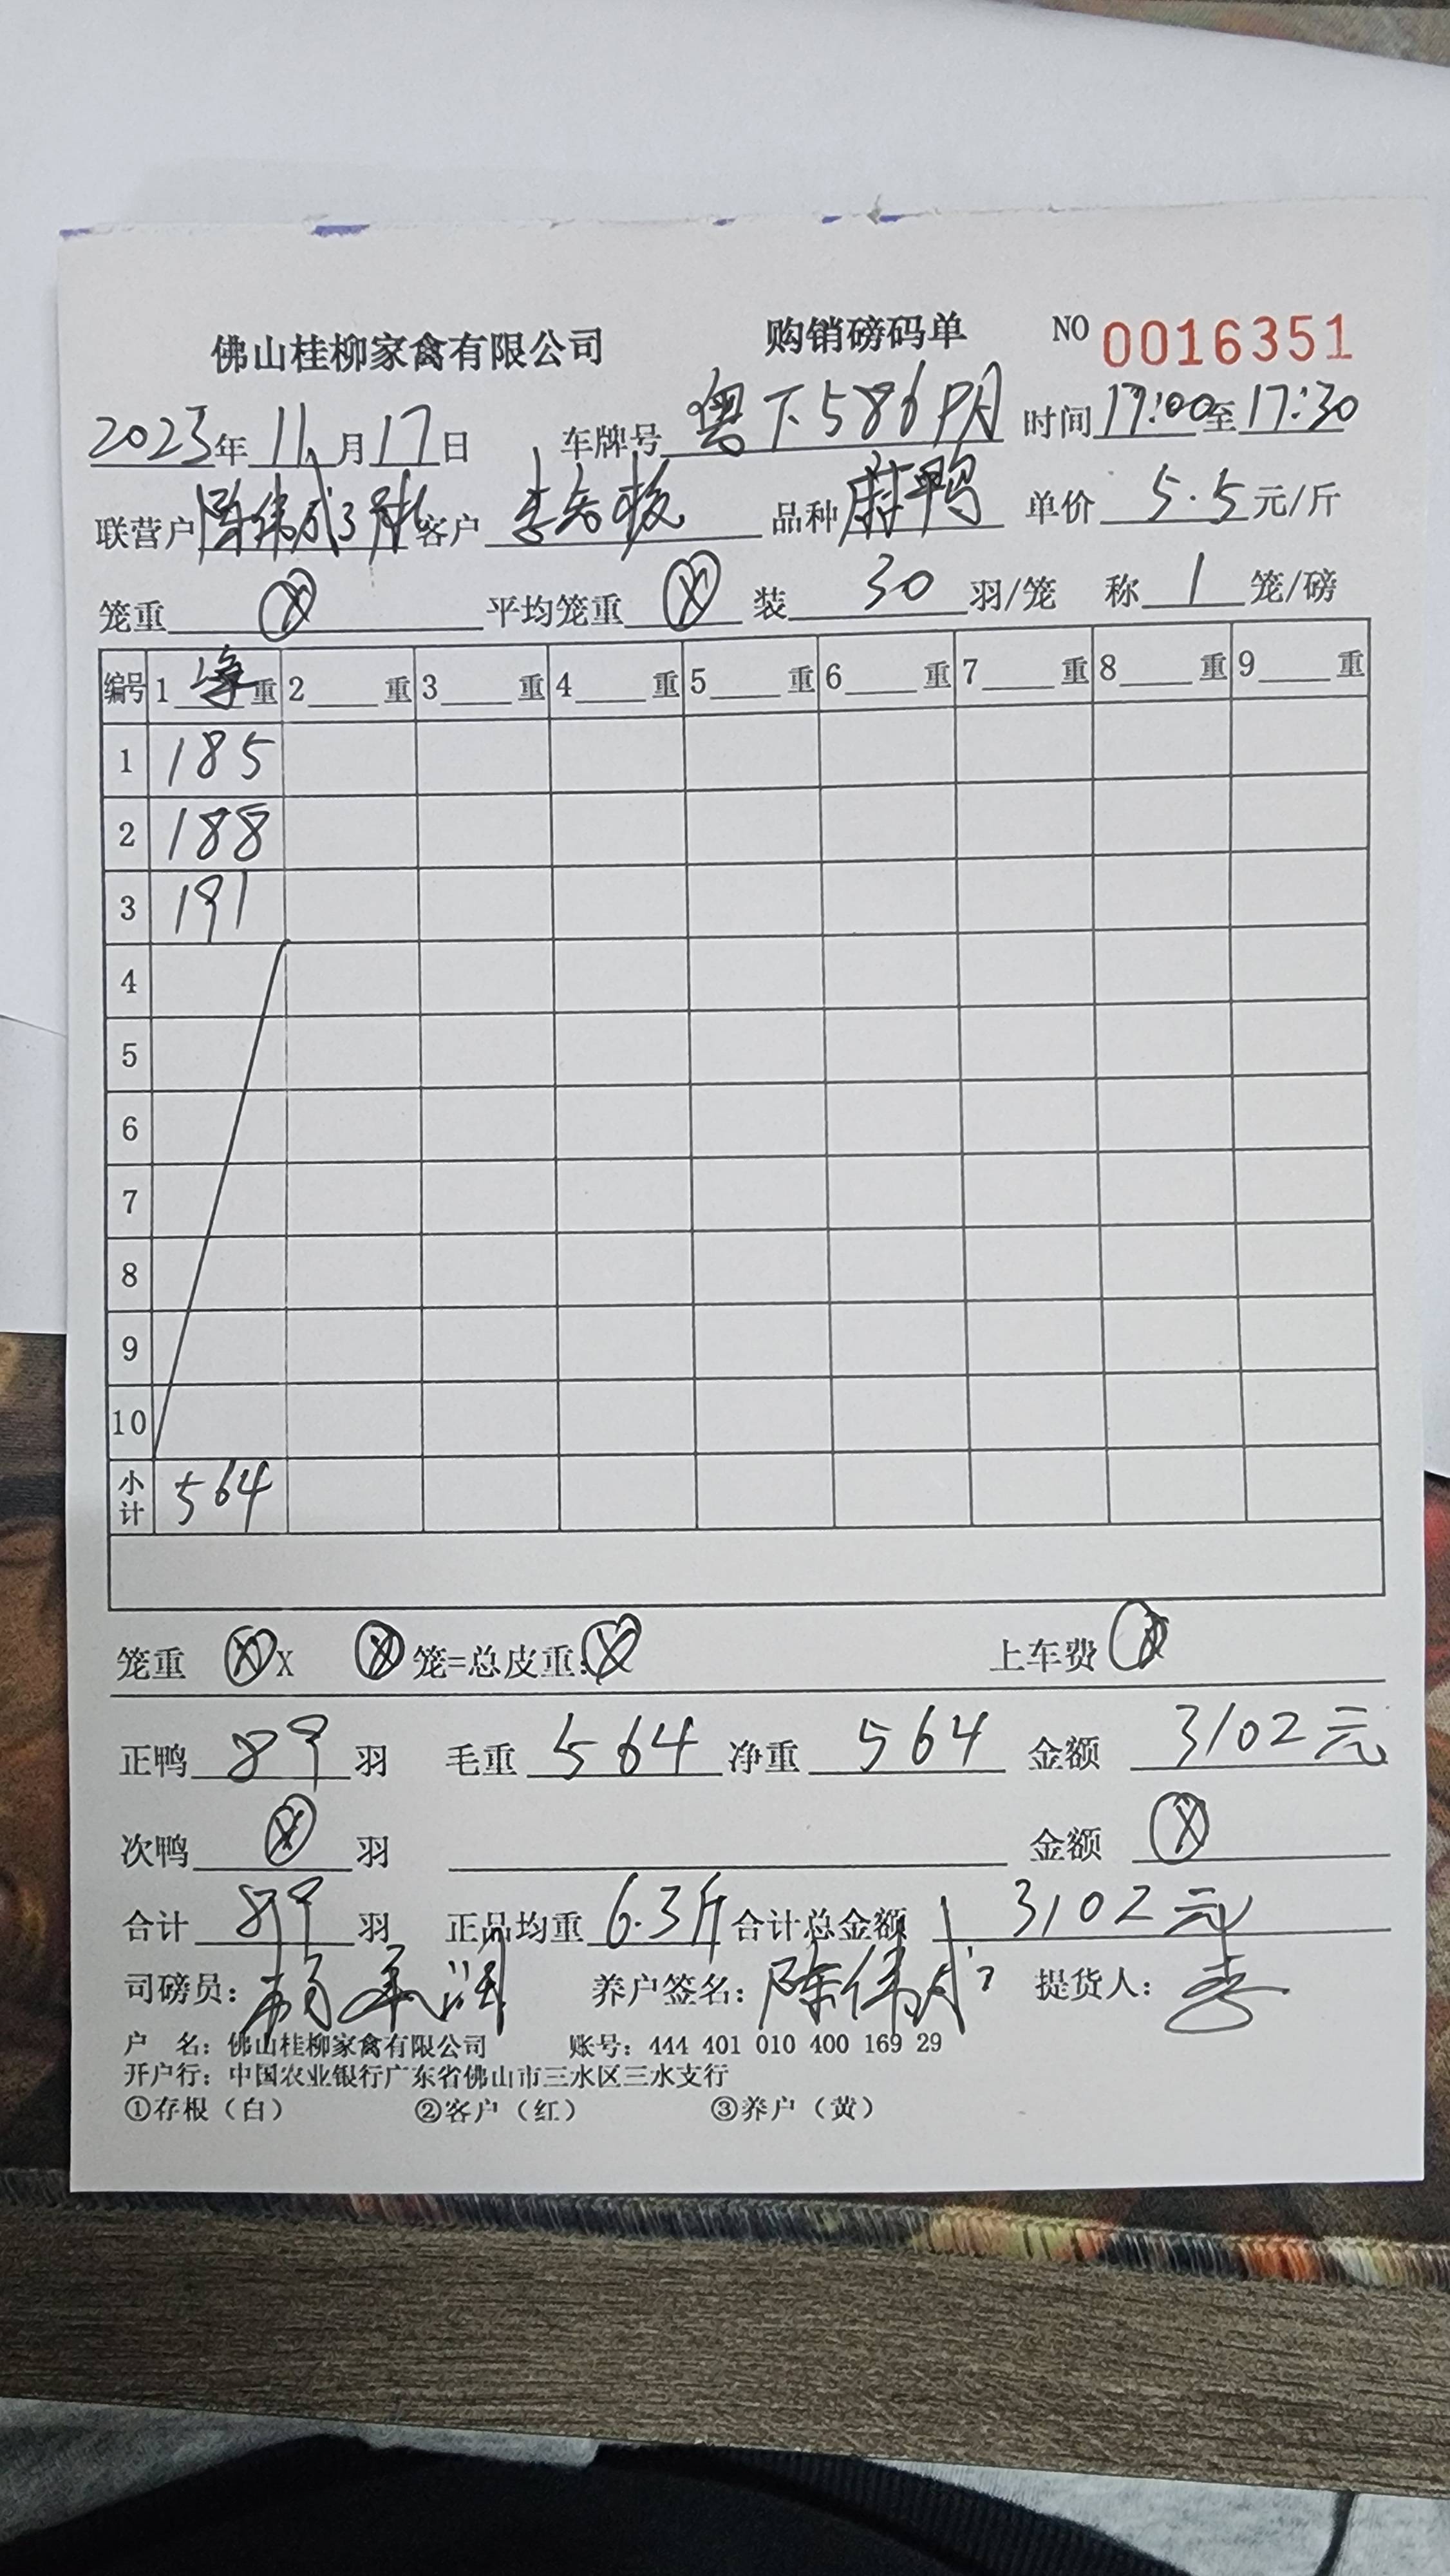 佛山桂柳家禽有限公司 购销磅码单 NO 0016351
2023年11月17日 车牌号 粤 586 时间 17:00至17:30
联营户 陈伟成 客户 李 品种 麻鸭 单价 5.5元/斤
笼重 平均笼重 装 30 羽/笼 称 1 笼/磅
编号 1 净 重 2 重 3 重 4 重 5 重 6 重 7 重 8 重 9 重
1 185
2 188
3 191
4
5
6
7
8
9
10
小计 564
笼重 X 笼=总皮重: 上车费
正鸭 89 羽 毛重 564 净重 564 金额 3102元
次鸭 羽 金额
合计 89 羽 正品均重 6.3斤 合计总金额 3102元
司磅员: 杨 润 养户签名: 陈伟成 提货人: 李
户 名: 佛山桂柳家禽有限公司 账号: 444 401 010 400 169 29
开户行: 中国农业银行广东省佛山市三水区三水支行
①存根（白） ②客户（红） ③养户（黄）